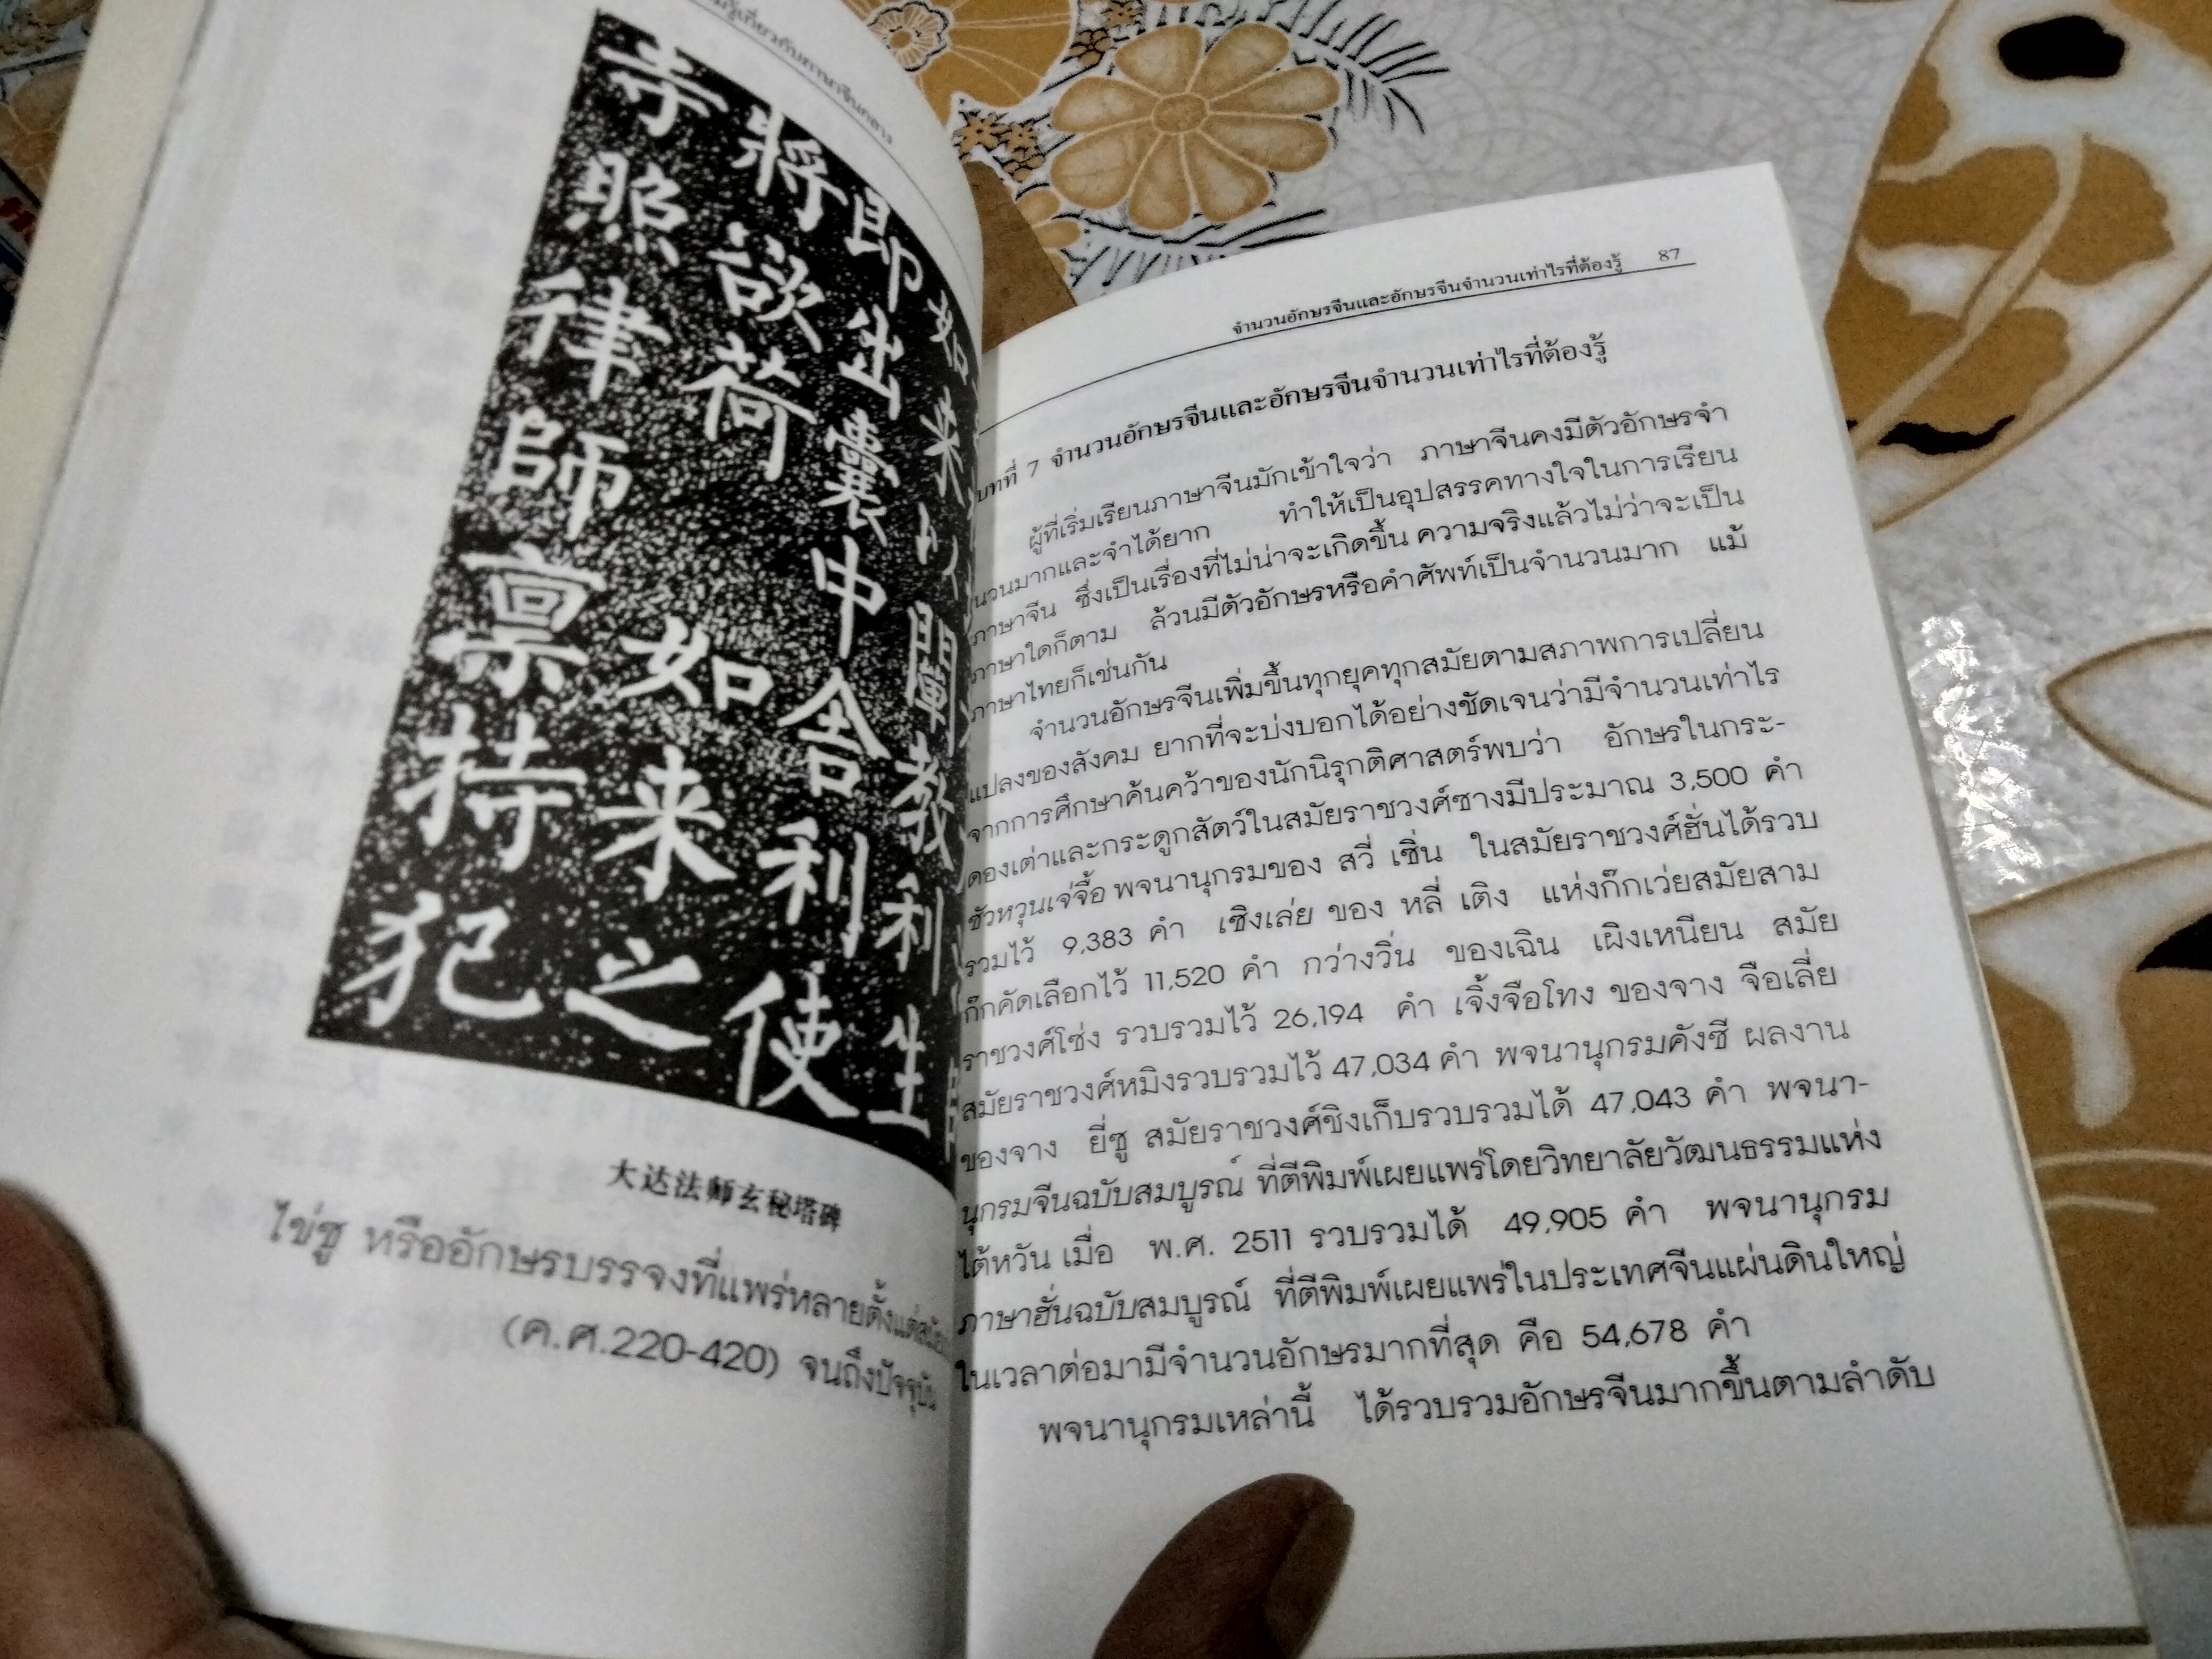 รู้เกี่ยวกับภาษาจีนกลาง
如来以人
闡教利生
即出囊中舍利使
將欲荷如来之
寺照律師禀持犯
大达法师玄秘塔碑
ไข่ซู หรืออักษรบรรจงที่แพร่หลายตั้งแต่สมัย
(ค.ศ.220-420) จนถึงปัจจุบัน
จำนวนอักษรจีนและอักษรจีนจำนวนเท่าไรที่ต้องรู้ 87
บทที่ 7 จำนวนอักษรจีนและอักษรจีนจำนวนเท่าไรที่ต้องรู้
ผู้ที่เริ่มเรียนภาษาจีนมักเข้าใจว่า ภาษาจีนคงมีตัวอักษรจำ
นวนมากและจำได้ยาก ทำให้เป็นอุปสรรคทางใจในการเรียน
ภาษาจีน ซึ่งเป็นเรื่องที่ไม่น่าจะเกิดขึ้น ความจริงแล้วไม่ว่าจะเป็น
ภาษาใดก็ตาม ล้วนมีตัวอักษรหรือคำศัพท์เป็นจำนวนมาก แม้
ภาษาไทยก็เช่นกัน
จำนวนอักษรจีนเพิ่มขึ้นทุกยุคทุกสมัยตามสภาพการเปลี่ยน
แปลงของสังคม ยากที่จะบ่งบอกได้อย่างชัดเจนว่ามีจำนวนเท่าไร
จากการศึกษาค้นคว้าของนักนิรุกติศาสตร์พบว่า อักษรในกระ-
ดองเต่าและกระดูกสัตว์ในสมัยราชวงศ์ซางมีประมาณ 3,500 คำ
ซัวหวุนเจ่จื้อ พจนานุกรมของ สวี่ เซิ่น ในสมัยราชวงศ์ฮั่นได้รวบ
รวมไว้ 9,383 คำ เซิงเล่ย ของ หลี่ เติง แห่งก๊กเว่ยสมัยสาม
ก๊กคัดเลือกไว้ 11,520 คำ กว่างวิ่น ของเฉิน เผิงเหนียน สมัย
ราชวงศ์โซ่ง รวบรวมไว้ 26,194 คำ เจิ้งจือโทง ของจาง จือเลี่ย
สมัยราชวงศ์หมิงรวบรวมไว้ 47,034 คำ พจนานุกรมคังซี ผลงาน
ของจาง ยี่ซู สมัยราชวงศ์ชิงเก็บรวบรวมได้ 47,043 คำ พจนา-
นุกรมจีนฉบับสมบูรณ์ ที่ตีพิมพ์เผยแพร่โดยวิทยาลัยวัฒนธรรมแห่ง
ไต้หวัน เมื่อ พ.ศ. 2511 รวบรวมได้ 49,905 คำ พจนานุกรม
ภาษาฮั่นฉบับสมบูรณ์ ที่ตีพิมพ์เผยแพร่ในประเทศจีนแผ่นดินใหญ่
ในเวลาต่อมามีจำนวนอักษรมากที่สุด คือ 54,678 คำ
พจนานุกรมเหล่านี้ ได้รวบรวมอักษรจีนมากขึ้นตามลำดับ